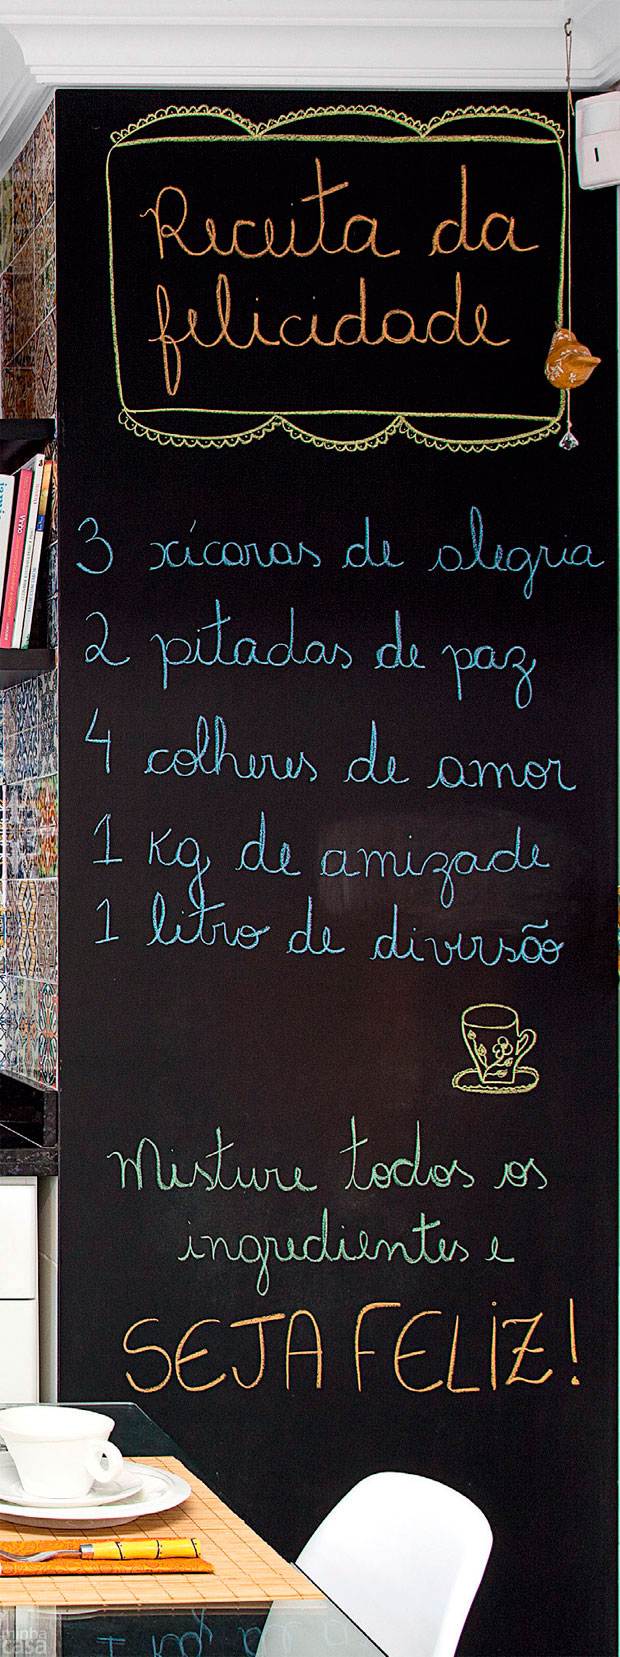 Receita da
felicidade
3 xícaras de alegria
2 pitadas de paz
4 colheres de amor
1 Kg de amizade
1 litro de diversão
Misture todos os
ingredientes e
SEJA FELIZ!
minha
casa